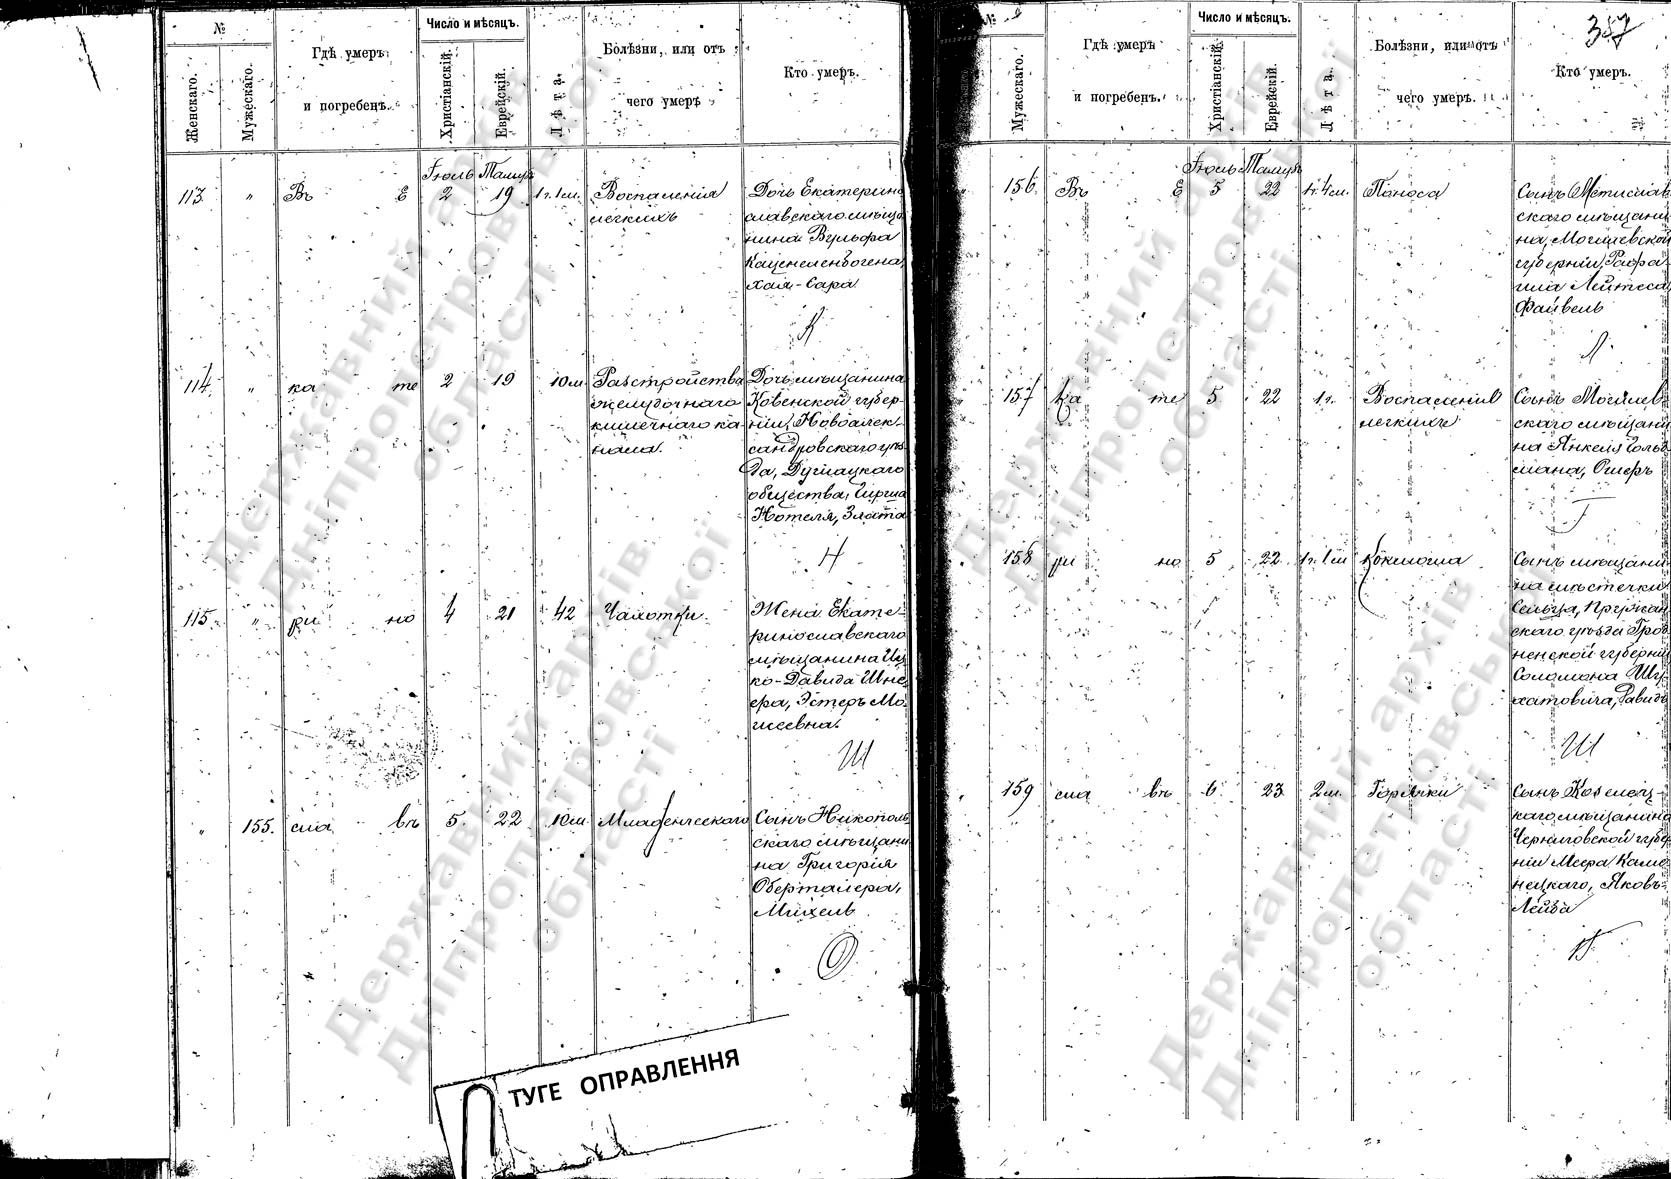 №
Женскаго.
Мужескаго.
Гдѣ умеръ
и погребенъ.
Число и мѣсяцъ.
Христіанскій.
Еврейскій.
Лѣта.
Болѣзни, или отъ
чего умеръ
Кто умеръ.
Іюль Тамузъ
113. „ Въ Е 2 19 1г. 1м. Воспаленія
легкихъ
Дочь Екатерино
славскаго мѣща
нина Вульфа
Каценеленбогена,
Хая-Сара
К
114. „ ка те 2 19 10м Разстройства
желудочнаго
кишечнаго ка
нала.
Дочь мѣщанина
Ковенской губер-
ніи, Новоалек-
сандровскаго уѣз
да, Дусяцкаго
общества, Гирша
Нотеля, Злата
Н
115. „ ри но 4 21 42 Чахотки.
Жена Екате-
ринославскаго
мѣщанина Иц
ко-Давида Шне
ера, Эстеръ Мо
исеевна.
Ш
„ 155. сла вѣ 5. 22 10м Младенческаго
Сынъ Никополь
скаго мѣщани
на Григорія
Оберталера,
Михель
О
ТУГЕ ОПРАВЛЕННЯ
№
Мужескаго.
Гдѣ умеръ
и погребенъ.
Число и мѣсяцъ.
Христіанскій.
Еврейскій.
Лѣта.
Болѣзни, или отъ
чего умеръ.
Кто умеръ.
357
Іюль Тамузъ
156. Въ Е 5 22 1г. 4м. Поноса
Сынъ Мстислав
скаго мѣщани
на, Могилевской
губерніи, Рафа
ила Лейтеса,
Файвель
Л
157 ка те 5 22 1г. Воспаленія
легкихъ
Сынъ Могилев
скаго мѣщани
на Янкеля Голь
мана, Ошеръ
Г
158 ри но 5 22 1г. 1м Коклюша
Сынъ мѣщани
на мѣстечки
Сельца, Пружан
скаго уѣзда Грод
ненской губерніи
Соломона Шу-
хатовича, Давидъ
Ш
159 сла вѣ 6 23 2м. Горячки
Сынъ Козелец-
каго мѣщанина
Черниговской губер
ніи Меера Каме
нецкаго, Яковъ-
Лейба
К
Державний архів
Дніпропетровської
області